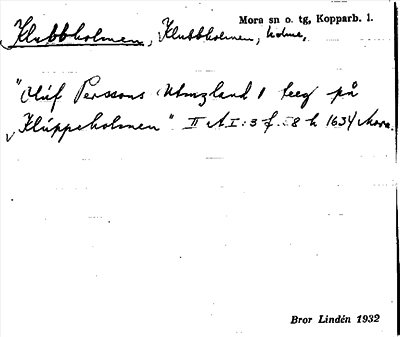 Mora sn o. tg, Kopparb. l.
Klubbholmen, Klubbholmen, holme,
"Oluf Perssons (Utmzland) teeg på
Klüppeholmen". II A I: 3 f. 58 h 1634 Mora.
Bror Lindén 1932